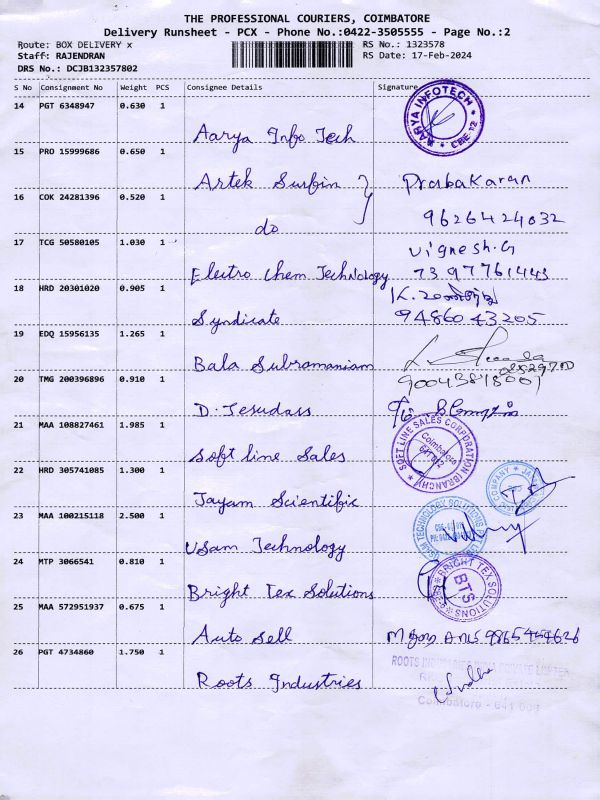 THE PROFESSIONAL COURIERS, COIMBATORE
Delivery Runsheet - PCX - Phone No.:0422-3505555 - Page No.:2
Route: BOX DELIVERY x RS No.: 1323578
Staff: RAJENDRAN RS Date: 17-Feb-2024
DRS No.: DCJB132357802
S No Consignment No Weight PCS Consignee Details Signature
14 PGT 6348947 0.630 1
Aarya Info Tech
AARYA INFOTECH * CBE-12 *
15 PRO 15999686 0.650 1
Artek Surfin } Prabakaran
16 COK 24281396 0.520 1
do 9626424032
17 TCG 50580105 1.030 1 Vignesh.G
Electro Chem Technology 7397761443
18 HRD 20301020 0.905 1
Syndicate 9486043205
19 EDQ 15956135 1.265 1
Bala Subramaniam
20 TMG 200396896 0.910 1
D. Jesudass
21 MAA 108827461 1.985 1
Soft line Sales
SOFT LINE SALES CORPORATION (BRANCH) Coimbatore
22 HRD 305741085 1.300 1
Jayam Scientific
23 MAA 100215118 2.500 1
Usam Technology
USAM TECHNOLOGY SOLUTIONS
24 MTP 3066541 0.810 1
Bright Tex Solutions
BRIGHT TEX SOLUTIONS BTS
25 MAA 572951937 0.675 1
Auto Sell
26 PGT 4734860 1.750 1
Roots Industries
ROOTS INDUSTRIES INDIA PRIVATE LIMITED
Coimbatore - 641